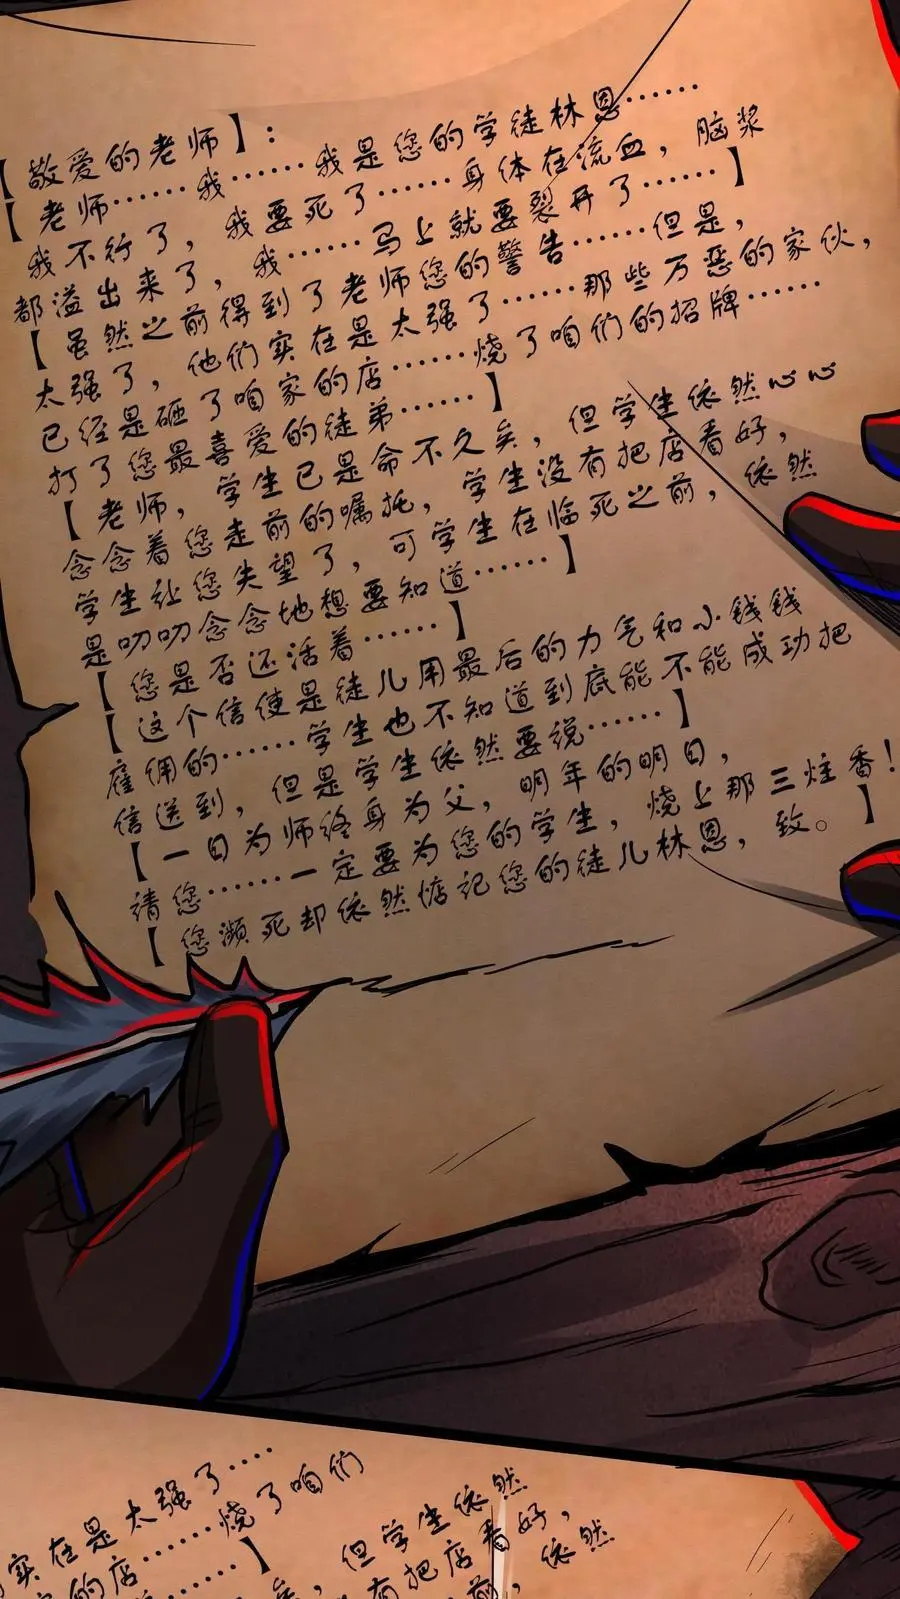 【敬爱的老师】：
【老师……我……我是您的学徒林恩……
我不行了，我要死了……身体在流血，脑浆
都溢出来了，我……马上就要裂开了……】
【虽然之前得到了老师您的警告……但是，
太强了，他们实在是太强了……那些万恶的家伙，
已经是砸了咱家的店……烧了咱们的招牌……
打了您最喜爱的徒弟……】
【老师，学生已是命不久矣，但学生依然心心
念念着您走前的嘱托，学生没有把店看好，
学生让您失望了，可学生在临死之前，依然
是叨叨念念地想要知道……】
【您是否还活着……】
【这个信使是徒儿用最后的力气和小钱钱
雇佣的……学生也不知道到底能不能成功把
信送到，但是学生依然要说……】
【一日为师终身为父，明年的明日，
请您……一定要为您的学生，烧上那三炷香！】
【您濒死却依然惦记您的徒儿林恩，致。】
实在是太强了……
的店……烧了咱们
】
，但学生依然
有把店看好，
前，依然